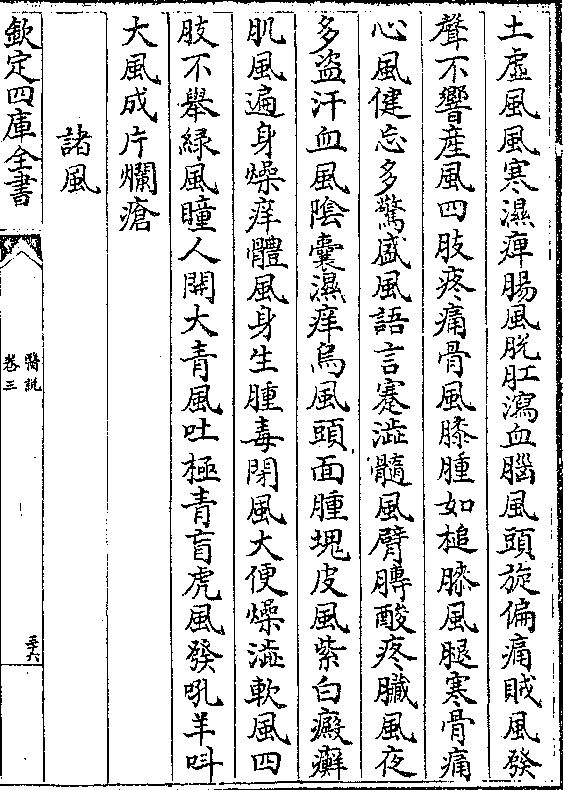 土虛風風寒濕痺腸風脱肛瀉血腦風頭旋偏痛賊風發
聲不響産風四肢疼痛骨風膝腫如槌膝風腿寒骨痛
心風健忘多驚盛風語言蹇澁髓風臂膊酸疼臟風夜
多盗汗血風陰囊濕痒烏風頭面腫塊皮風紫白癜癬
肌風遍身燥痒體風身生腫毒閉風大便燥澁軟風四
肢不舉緑風瞳人開大青風吐極青盲虎風發吼羊呌
大風成片爛瘡
諸風
欽定四庫全書
醫說
卷三
三十六